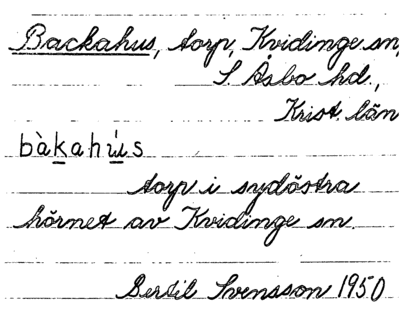 Backahus, torp, Kvidinge sn,
S. Åsbo hd.,
Krist. län
bàkahú̀s
torp i sydöstra
hörnet av Kvidinge sn.
Bertil Svensson 1950